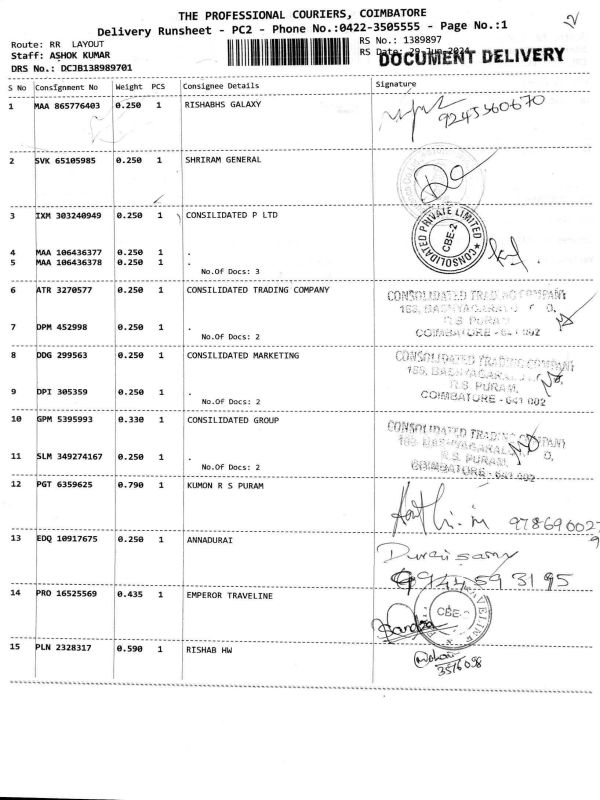 THE PROFESSIONAL COURIERS, COIMBATORE
Delivery Runsheet - PC2 - Phone No.:0422-3505555 - Page No.:1
12
Route: RR LAYOUT
RS No.: 1389897
Staff: ASHOK KUMAR
RS Date: 29-Jun-2024
DOCUMENT DELIVERY
DRS No.: DCJB138989701
S No Consignment No Weight PCS Consignee Details Signature
1 MAA 865776403 0.250 1 RISHABHS GALAXY
9245360670
2 SVK 65105985 0.250 1 SHRIRAM GENERAL
3 IXM 303240949 0.250 1 CONSILIDATED P LTD
CONSOLIDATED PRIVATE LIMITED
CBE-2
4 MAA 106436377 0.250 1 .
5 MAA 106436378 0.250 1 .
No.Of Docs: 3
6 ATR 3270577 0.250 1 CONSILIDATED TRADING COMPANY
CONSOLIDATED TRADING COMPANY
R.S. PURAM
COIMBATORE - 641 002
7 DPM 452998 0.250 1 .
No.Of Docs: 2
8 DDG 299563 0.250 1 CONSILIDATED MARKETING
CONSOLIDATED TRADING COMPANY
R.S. PURAM,
COIMBATORE - 641 002
9 DPI 305359 0.250 1 .
No.Of Docs: 2
10 GPM 5395993 0.330 1 CONSILIDATED GROUP
CONSOLIDATED TRADING COMPANY
R.S. PURAM,
COIMBATORE - 641 002
11 SLM 349274167 0.250 1 .
No.Of Docs: 2
12 PGT 6359625 0.790 1 KUMON R S PURAM
13 EDQ 10917675 0.250 1 ANNADURAI
Duraisamy
9944593195
14 PRO 16525569 0.435 1 EMPEROR TRAVELINE
CBE-2
15 PLN 2328317 0.590 1 RISHAB HW
3576098